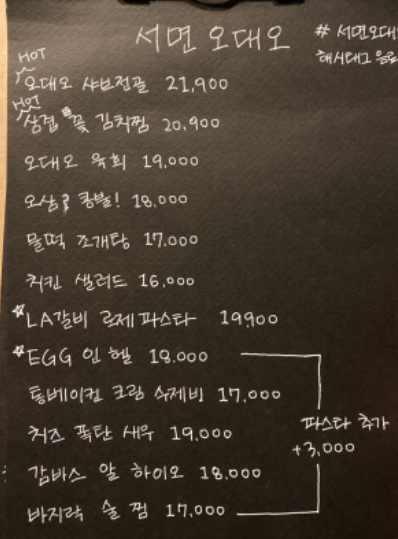 서면 오대오
# 서면오대
해시태그 음료
HOT
오대오 샤브전골 21,900
HOT
삼겹 꽃 김치찜 20,900
오대오 육회 19,000
오삼 콩불! 18,000
물떡 조개탕 17,000
치킨 샐러드 16,000
☆LA갈비 로제파스타 19,900
☆EGG 인 헬 18.000
통베이컨 크림 수제비 17,000
치즈 폭탄 새우 19,000
감바스 알 하이오 18,000
바지락 술 찜 17,000
파스타 추가
+3,000